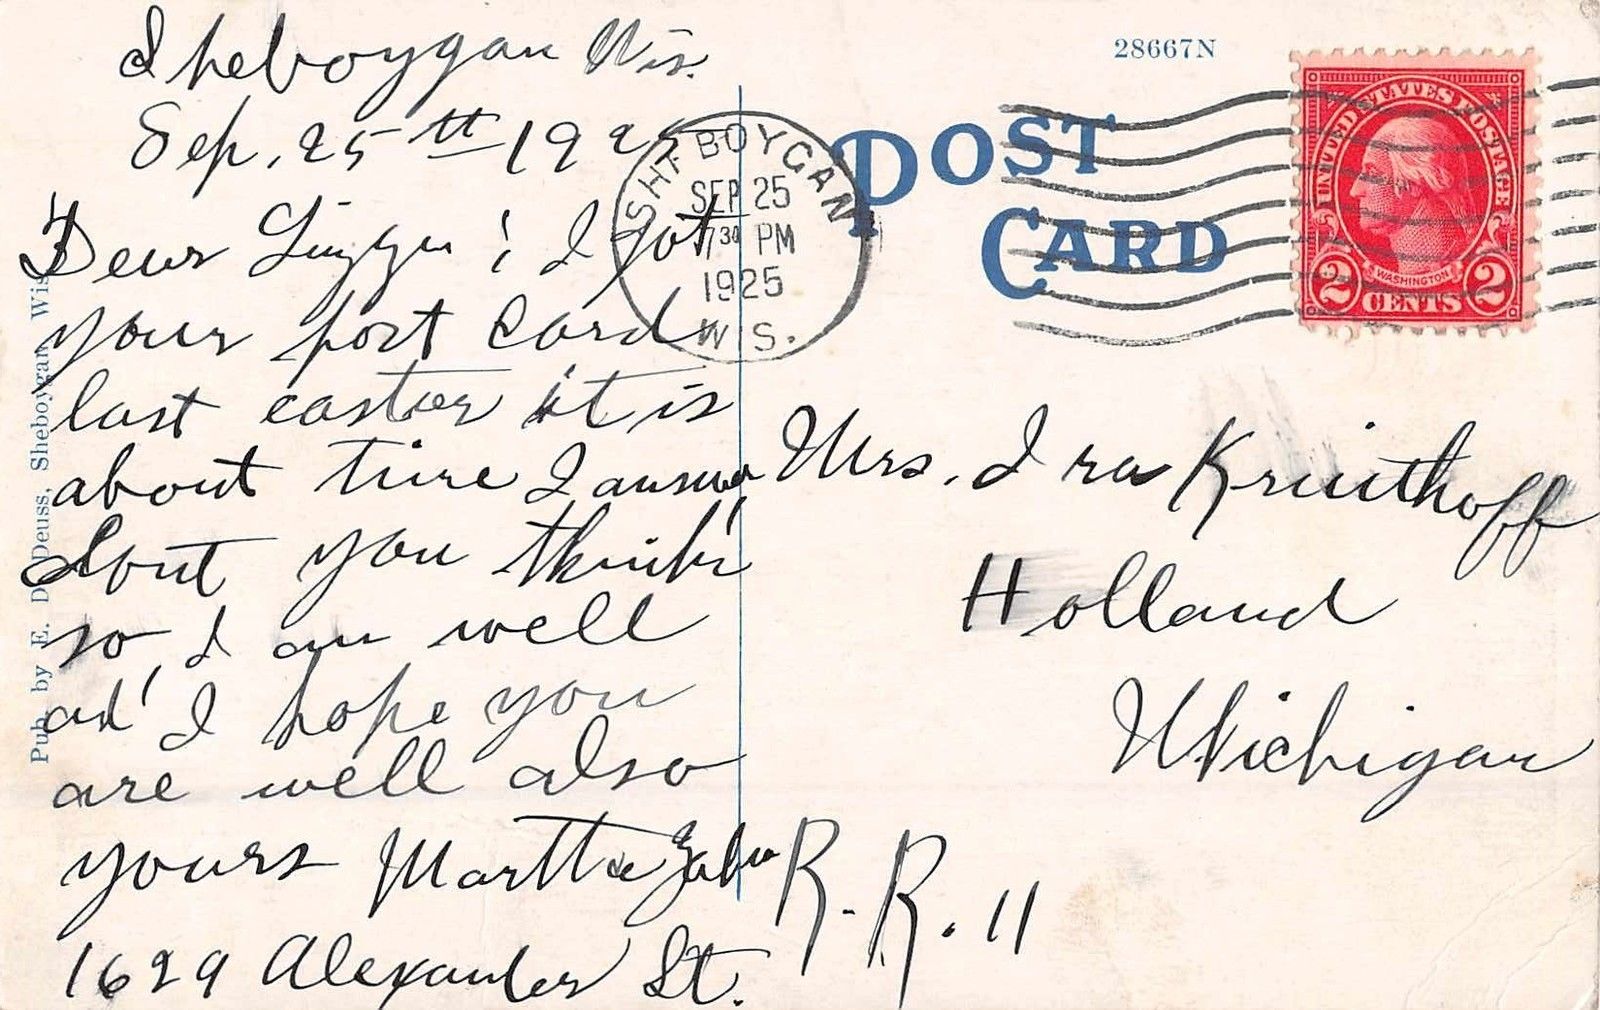 Sheboygan Wis.
Sep. 25th 1925
Dear Lizzie; I got
your post card
last easter it is
about time I answer
dont you think
so, I am well
and I hope you
are well also
yours Martha
1629 Alexander St.
Pub. by E. D. Deuss, Sheboygan, Wis.
28667N
POST
CARD
SHEBOYGAN
SEP 25
7 30 PM
1925
WIS.
UNITED STATES POSTAGE
WASHINGTON
2 CENTS 2
Mrs. Ira Kruithoff
Holland
Michigan
R. R. 11